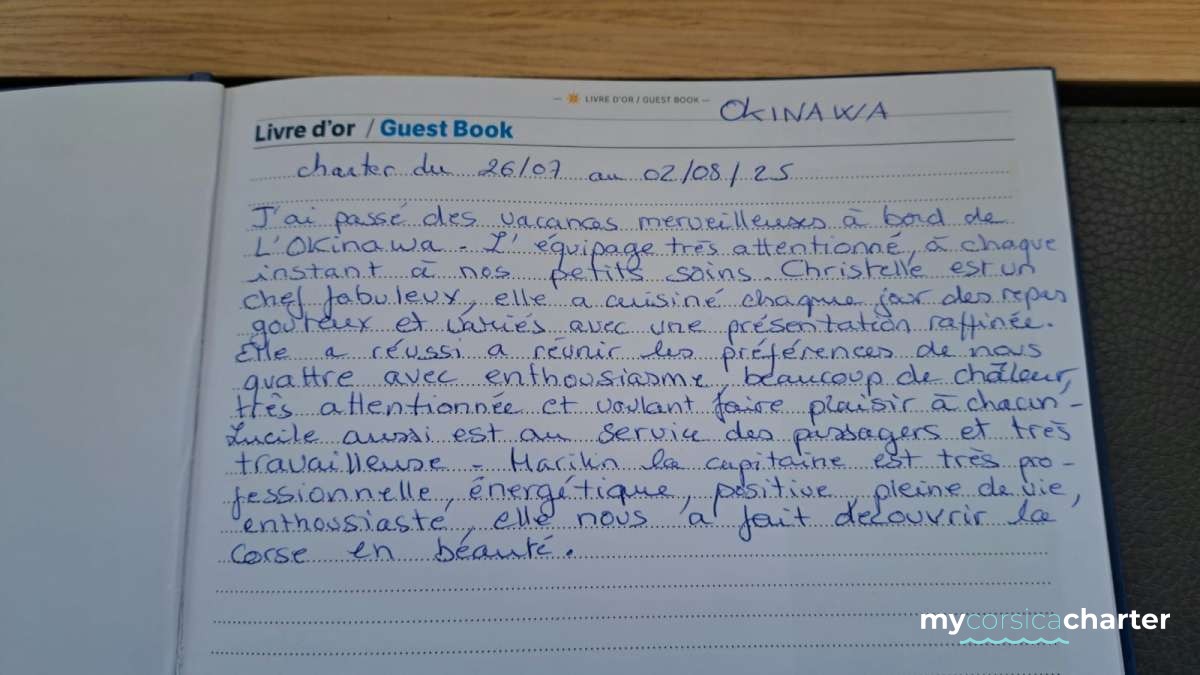 LIVRE D'OR / GUEST BOOK
OKINAWA
Livre d'or / Guest Book
charter du 26/07 au 02/08/25
J'ai passé des vacances merveilleuses à bord de
L'Okinawa. L'équipage très attentionné, à chaque
instant à nos petits soins. Christelle est un
chef fabuleux, elle a cuisiné chaque jour des repas
gouteux et variés avec une présentation raffinée.
Elle a réussi a réunir les préférences de nous
quattre avec enthousiasme, beaucoup de châleur,
très attentionnée et voulant faire plaisir à chacun -
Lucile aussi est au service des passagers et très
travailleuse - Marilin la capitaine est très pro-
fessionnelle, énergétique, positive, pleine de vie,
enthousiaste, elle nous a fait découvrir la
Corse en béauté.
mycorsicacharter